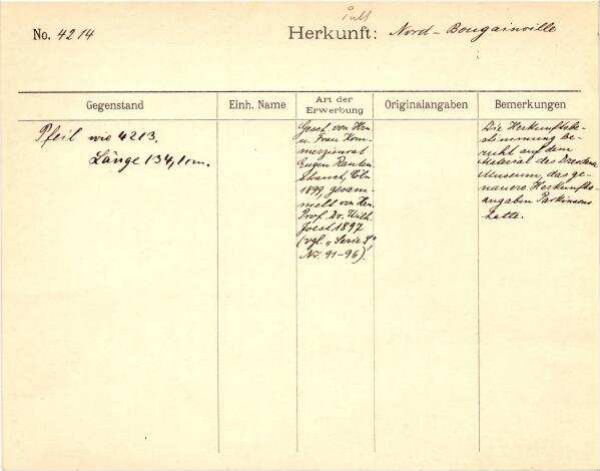 No. 4214
Herkunft: Nord-Bougainville
Gegenstand
Einh. Name
Art der
Erwerbung
Originalangaben
Bemerkungen
Pfeil wie 4213.
Länge 134,1 cm.
Gesch. von Hrn
u. Frau Kom-
merzienrat
Eugen Rauten-
strauch, Cöln
1899, gesam-
melt von Hrn.
Prof. Dr. Wilh.
Joest 1897
(vgl. „Serie
Nr. 91-96).
Die Herkunftsbe-
stimmung be-
ruht auf dem
Material des Dresdens
Museum, das ge-
nauere Herkunfts-
angaben Parkinsons
hatte.